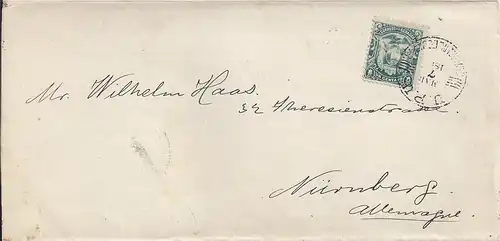 Mr. Wilhelm Haas.
32 Theresienstrasse.
Nürnberg.
Allemagne.
MAR
7